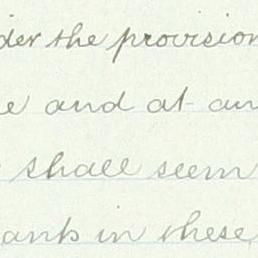 der the provision
e and at an
shall seem
ank in these